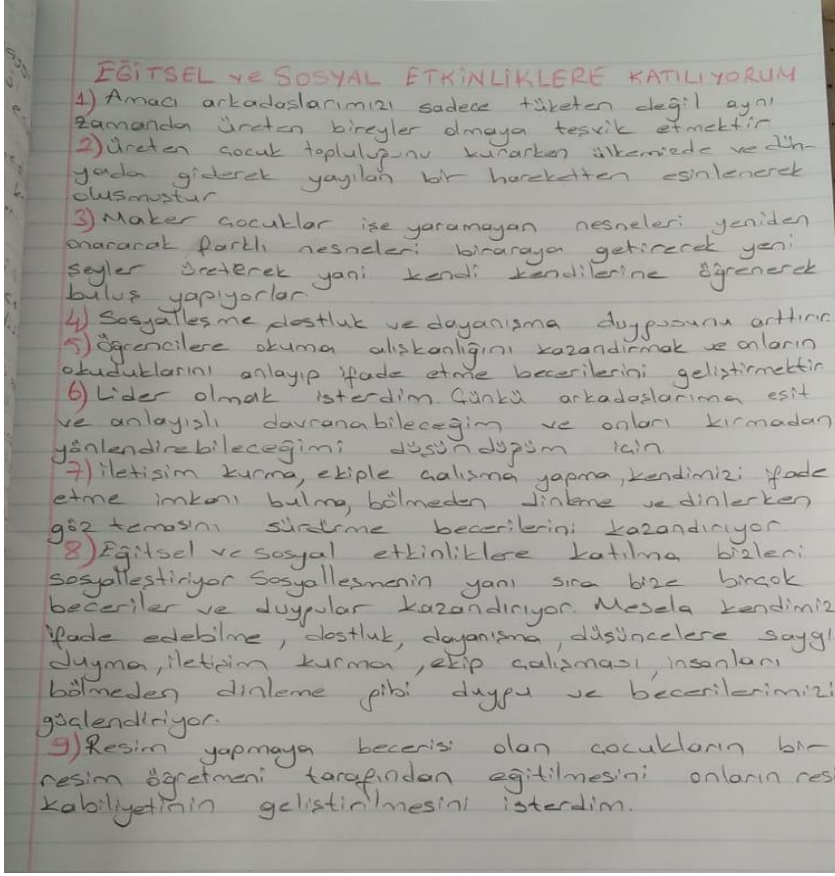 EĞİTSEL ve SOSYAL ETKİNLİKLERE KATILIYORUM
1) Amacı arkadaşlarımızı sadece tüketen değil aynı
zamanda üreten bireyler olmaya teşvik etmektir
2) Üreten çocuk topluluğunu kurarken ülkemizde ve dün-
yada giderek yayılan bir hareketten esinlenerek
oluşmuştur
3) Maker çocuklar işe yaramayan nesneleri yeniden
onararak farklı nesneleri biraraya getirerek yeni
şeyler üreterek yani kendi kendilerine öğrenerek
buluş yapıyorlar
4) Sosyalleşme dostluk ve dayanışma duygusunu arttırır
5) öğrencilere okuma alışkanlığını kazandırmak ve onların
okuduklarını anlayıp ifade etme becerilerini geliştirmektir
6) Lider olmak isterdim. Çünkü arkadaşlarıma eşit
ve anlayışlı davranabileceğim ve onları kırmadan
yönlendirebileceğimi düşündüğüm için
7) iletişim kurma, ekiple çalışma yapma, kendimizi ifade
etme imkanı bulma, bölmeden dinleme ve dinlerken
göz temasını sürdürme becerilerini kazandırıyor
8) Eğitsel ve sosyal etkinliklere katılma bizleri
sosyalleştiriyor Sosyalleşmenin yanı sıra bize birçok
beceriler ve duygular kazandırıyor. Mesela kendimiz
ifade edebilme, dostluk, dayanışma, düşüncelere saygı
duyma, iletişim kurma, ekip çalışması, insanları
bölmeden dinleme gibi duygu ve becerilerimizi
güçlendiriyor.
9) Resim yapmaya becerisi olan çocukların bir
resim öğretmeni tarafından eğitilmesini onların res
kabiliyetinin geliştirilmesini isterdim.